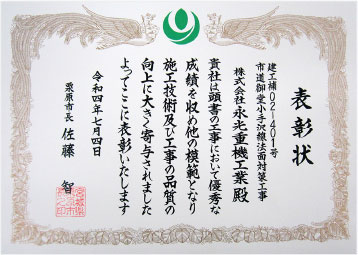 表彰状
建工補02-401号
市道御堂小手沢線法面対策工事
株式会社永光重機工業殿
貴社は頭書の工事において優秀な
成績を収め他の模範となり
施工技術及び工事の品質の
向上に大きく寄与されました
よってここに表彰いたします
令和四年七月四日
栗原市長 佐藤 智